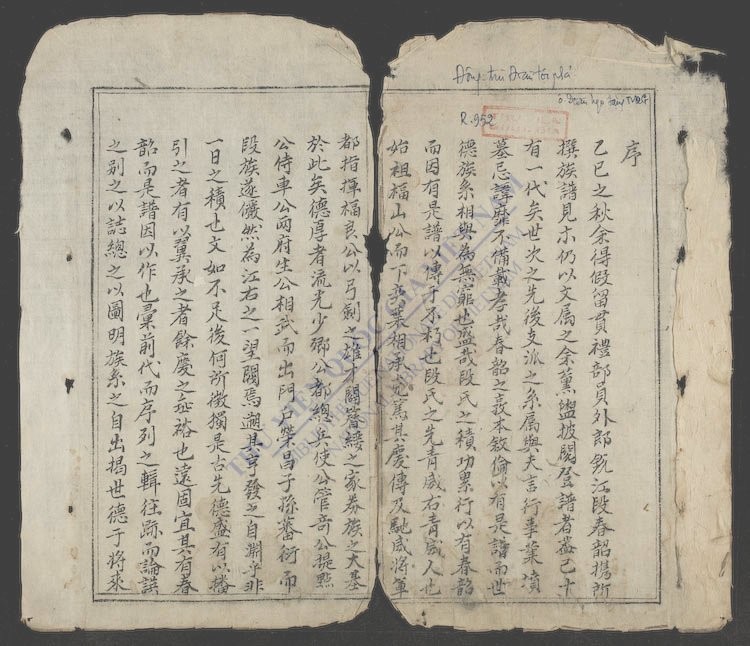 Đông-trù Đoàn tộc phả
R.952
序
乙巳之秋余得假留貫禮部員外郎甄江段春韶携所
撰族譜見示仍以文属之余薰盥披閱登譜者盖已十
有一代矣世次之先後支派之系属與夫言行事業墳
墓忌諱靡不備載孝哉春韶之本敘倫以有是譜而世
德族系相與為無窮也盛哉段氏之積功累行以有春韶
而因有是譜以傳于不朽也段氏之先青威右青威人也
始祖福山公而下奕葉相承克篤其慶傳及馳威將軍
都指揮福良公以弓劍之雄閥簪纓之家券族之大基
於此矣德厚者流光少鄉公都總兵使公管竒公提點
公侍車公兩府生公相武而出門戶榮昌子孫蕃衍而
段族遂儼然為江右之一望閥焉遡其亨發之自淵乎非
一日之積也文如不足後何所徵獨是古先德盛有以
引之者有以翼承之者餘慶之延裕也遠固宜其有春
韶而是譜因以作也彙前代而序列之輯往跡而論譔
之别之以誌總之以圖明族系之自出揭世德于將來
THƯ VIỆN QUỐC GIA VIỆT NAM